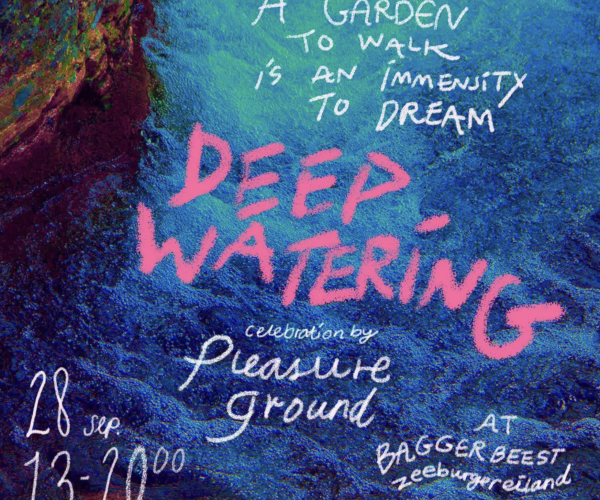 A GARDEN
TO WALK
is AN iMMENSiTY
TO DREAM
DEEP
WATERiNG
celebration by
Pleasure
ground
28 sep.
13-20⁰⁰
AT
BAGGERBEEST
zeeburgereiland